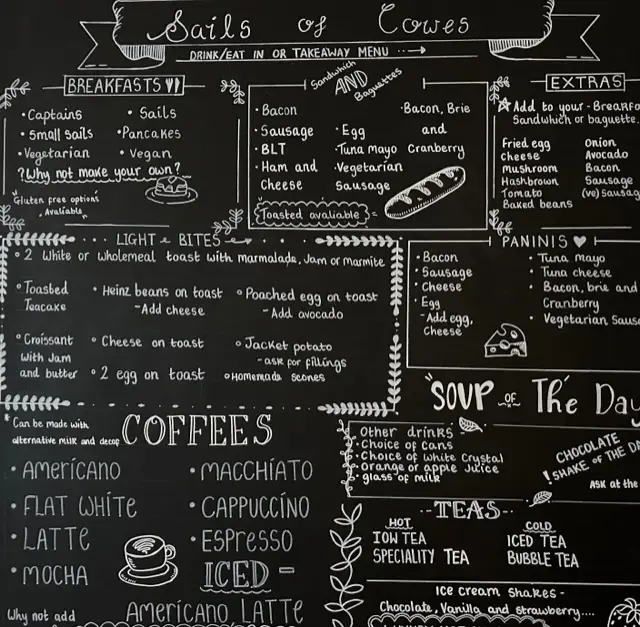 Sails of Cowes
DRINK/EAT IN OR TAKEAWAY MENU
BREAKFASTS
• Captains • Sails
• Small Sails • Pancakes
• Vegetarian • Vegan
? Why not make your own?
Gluten free options
Avaliable
Sandwhich
AND
Baguettes
• Bacon
• Sausage
• BLT
• Ham and
Cheese
• Egg
• Tuna mayo
• Vegetarian
Sausage
• Bacon, Brie
and
Cranberry
Toasted avaliable
EXTRAS
Add to your - Breakfa
Sandwhich or baguette.
Fried egg
Cheese
Mushroom
Hashbrown
Tomato
Baked beans
Onion
Avocado
Bacon
Sausage
(ve) Sausag
LIGHT BITES
• 2 White or wholemeal toast with marmalade, Jam or marmite
• Toasted
Teacake
• Heinz beans on toast
- Add cheese
• Poached egg on toast
- Add avocado
• Croissant
With Jam
and butter
• Cheese on toast
• 2 egg on toast
• Jacket potato
- ask for fillings
• Homemade scones
PANINIS
• Bacon
• Sausage
• Cheese
• Egg
- Add egg,
Cheese
• Tuna mayo
• Tuna cheese
• Bacon, brie and
Cranberry
• Vegetarian Saus
"SOUP OF The Day
* Can be made with
alternative milk and decaf
COFFEES
• AMERICANO
• FLAT WHITE
• LATTE
• MOCHA
• MACCHIATO
• CAPPUCCINO
• ESPRESSO
ICED -
Why not add
Americano LATTE
Other drinks
• Choice of cans
• Choice of White Crystal
• Orange or apple Juice
• glass of milk
CHOCOLATE
! SHAKE OF THE DA
ASK at the
-- TEAS --
HOT
IOW TEA
SPECIALITY TEA
COLD
ICED TEA
BUBBLE TEA
Ice cream shakes -
Chocolate, Vanilla and strawberry....